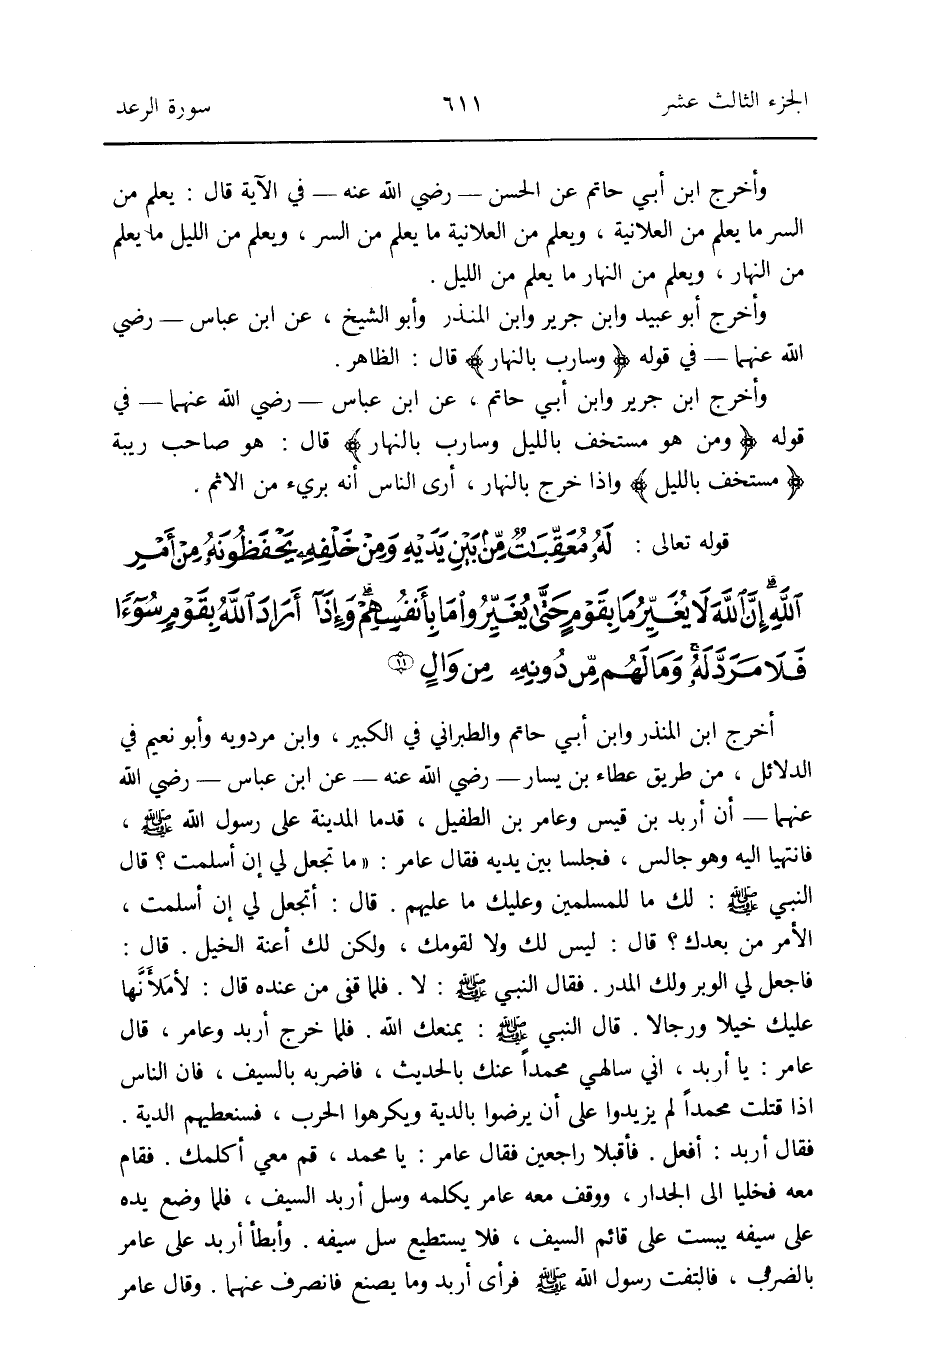 الجزء الثالث عشر ٦١١ سورة الرعد
وأخرج ابن أبي حاتم عن الحسن – رضي الله عنه – في الآية قال : يعلم من
السر ما يعلم من العلانية ، ويعلم من العلانية ما يعلم من السر ، ويعلم من الليل ما يعلم
من النهار ، ويعلم من النهار ما يعلم من الليل .
وأخرج أبو عبيد وابن جرير وابن المنذر وأبو الشيخ ، عن ابن عباس – رضي
الله عنهما – في قوله ﴿ وسارب بالنهار ﴾ قال : الظاهر .
وأخرج ابن جرير وابن أبي حاتم ، عن ابن عباس – رضي الله عنهما – في
قوله ﴿ ومن هو مستخف بالليل وسارب بالنهار ﴾ قال : هو صاحب ريبة
﴿ مستخف بالليل ﴾ واذا خرج بالنهار ، أرى الناس أنه بريء من الاثم .
قوله تعالى : لَهُ مُعَقِّبَاتٌ مِّنْ بَيْنِ يَدَيْهِ وَمِنْ خَلْفِهِ يَحْفَظُونَهُ مِنْ أَمْرِ
اللَّهِ إِنَّ اللَّهَ لَا يُغَيِّرُ مَا بِقَوْمٍ حَتَّى يُغَيِّرُوا مَا بِأَنفُسِهِمْ وَإِذَا أَرَادَ اللَّهُ بِقَوْمٍ سُوءًا
فَلَا مَرَدَّ لَهُ وَمَا لَهُم مِّن دُونِهِ مِن وَالٍ ١١
أخرج ابن المنذر وابن أبي حاتم والطبراني في الكبير ، وابن مردويه وأبو نعيم في
الدلائل ، من طريق عطاء بن يسار – رضي الله عنه – عن ابن عباس – رضي الله
عنهما – أن أربد بن قيس وعامر بن الطفيل ، قدما المدينة على رسول الله ﷺ ،
فانتهيا اليه وهو جالس ، فجلسا بين يديه فقال عامر : « ما تجعل لي إن أسلمت ؟ قال
النبي ﷺ : لك ما للمسلمين وعليك ما عليهم . قال : أتجعل لي إن أسلمت ،
الأمر من بعدك ؟ قال : ليس لك ولا لقومك ، ولكن لك أعنة الخيل . قال :
فاجعل لي الوبر ولك المدر . فقال النبي ﷺ : لا . فلما قفى من عنده قال : لأملأنَّها
عليك خيلا ورجالا . قال النبي ﷺ : يمنعك الله . فلما خرج أربد وعامر ، قال
عامر : يا أربد ، اني سالهي محمداً عنك بالحديث ، فاضربه بالسيف ، فان الناس
اذا قتلت محمداً لم يزيدوا على أن يرضوا بالدية ويكرهوا الحرب ، فسنعطيهم الدية .
فقال أربد : أفعل . فأقبلا راجعين فقال عامر : يا محمد ، قم معي أكلمك . فقام
معه فخليا الى الجدار ، ووقف معه عامر يكلمه وسل أربد السيف ، فلما وضع يده
على سيفه يبست على قائم السيف ، فلا يستطيع سل سيفه . وأبطأ أربد على عامر
بالضرب ، فالتفت رسول الله ﷺ فرأى أربد وما يصنع فانصرف عنهما . وقال عامر